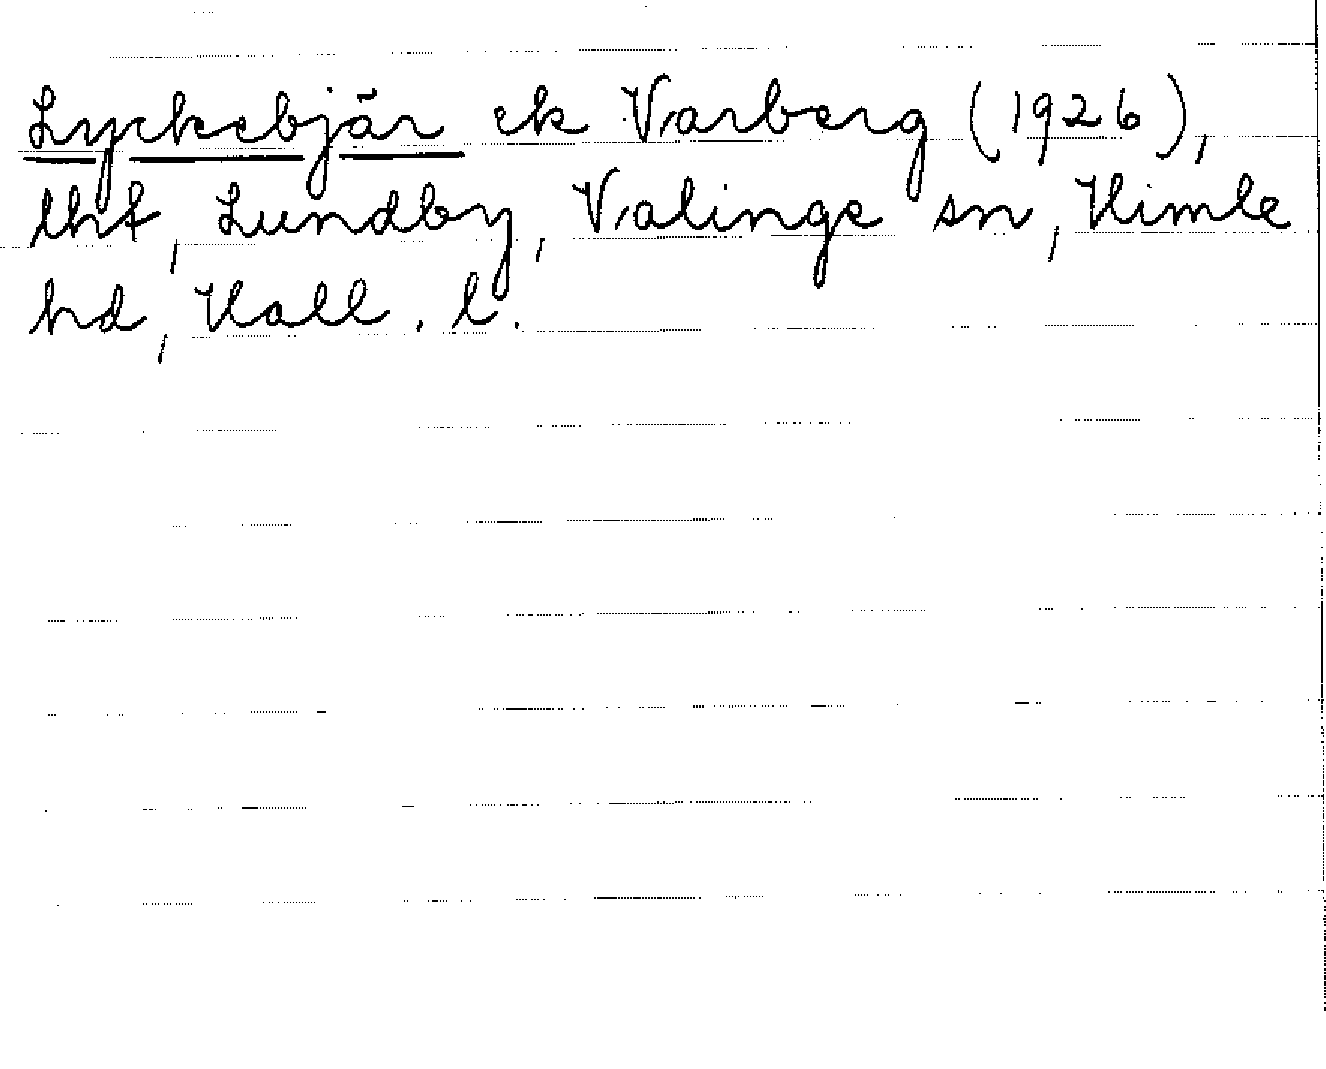 Lyckebjär ek Varberg (1926),
lht, Lundby, Valinge sn, Himle
hd, Hall. l.